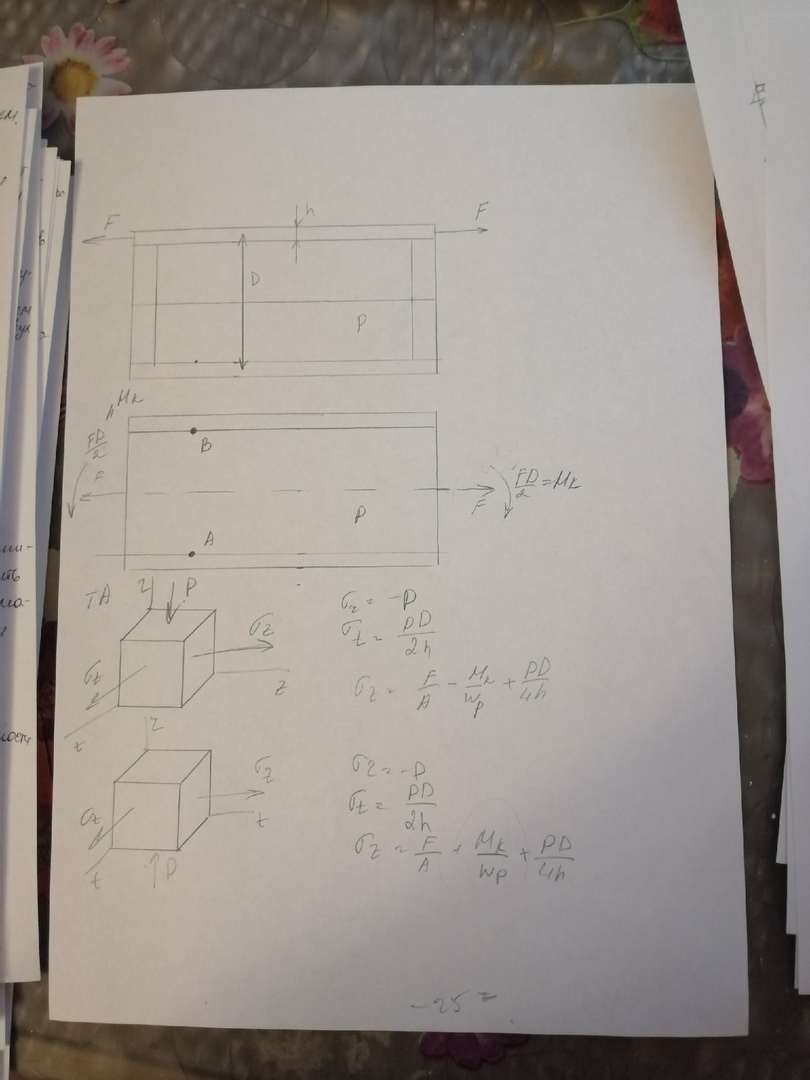 F
h
F
D
P
Mk
FD/2
F
B
P
A
F
FD/2 = Mk
TA
r
P
σz
σt
z
t
σr = -P
σt = PD/2h
σz = F/A - Mk/Wp + PD/4h
r
σz
σt
z
t
P
σr = -P
σt = PD/2h
σz = F/A + Mk/Wp + PD/4h
- 25 =